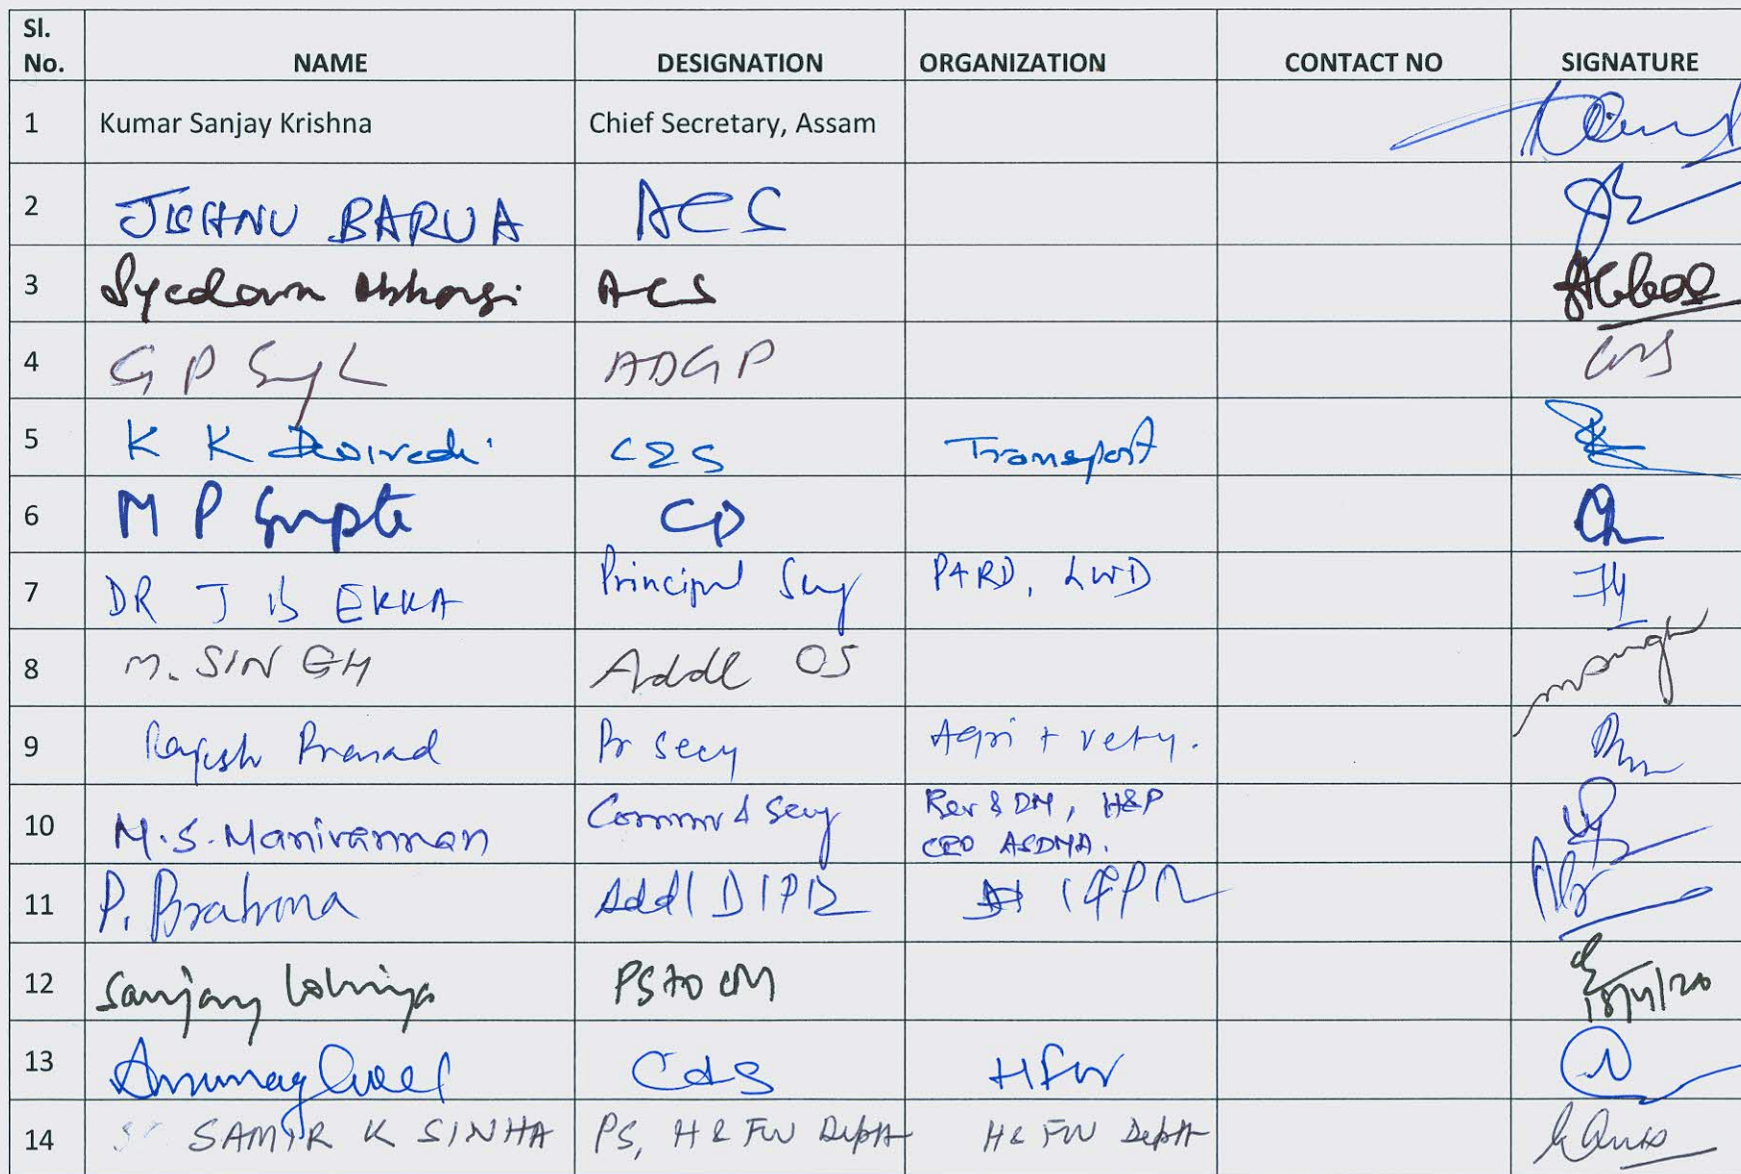 Sl. No. NAME DESIGNATION ORGANIZATION CONTACT NO SIGNATURE
1 Kumar Sanjay Krishna Chief Secretary, Assam
2 JISHNU BARUA ACS
3 ACS
4 G P ADGP
5 K K Dwivedi C&S Transport
6 M P Gupta CD
7 DR J B EKKA Principal Secy P&RD, LWD
8 M. SINGH Addl CS msingh
9 Rajesh Prasad Pr Secy Agri + vety.
10 M.S. Manivannan Commr & Secy Rev & DM, H&P
CEO ASDMA.
11 P. Brahma Addl DIPR I&PR
12 Sanjay Lohiya PS to CM
13 Anurag Goel C&S HFW
14 SAMIR K SINHA PS, H & FW Deptt H & FW Deptt